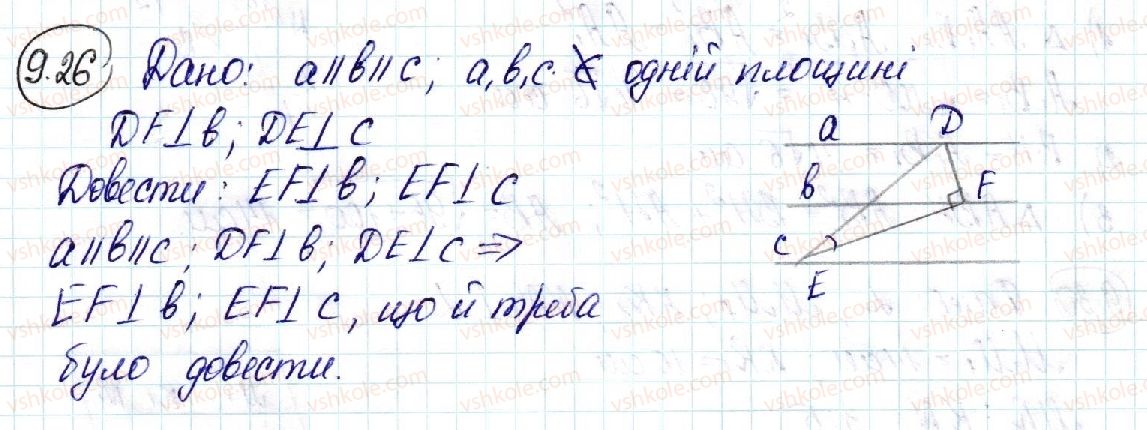 9.26 Дано: a||b||c; a,b,c ∉ одній площині
DF⊥b; DE⊥c
Довести: EF⊥b; EF⊥c
a||b||c; DF⊥b; DE⊥c ⇒
EF⊥b; EF⊥c, що й треба
було довести.
a D
b F
c
E